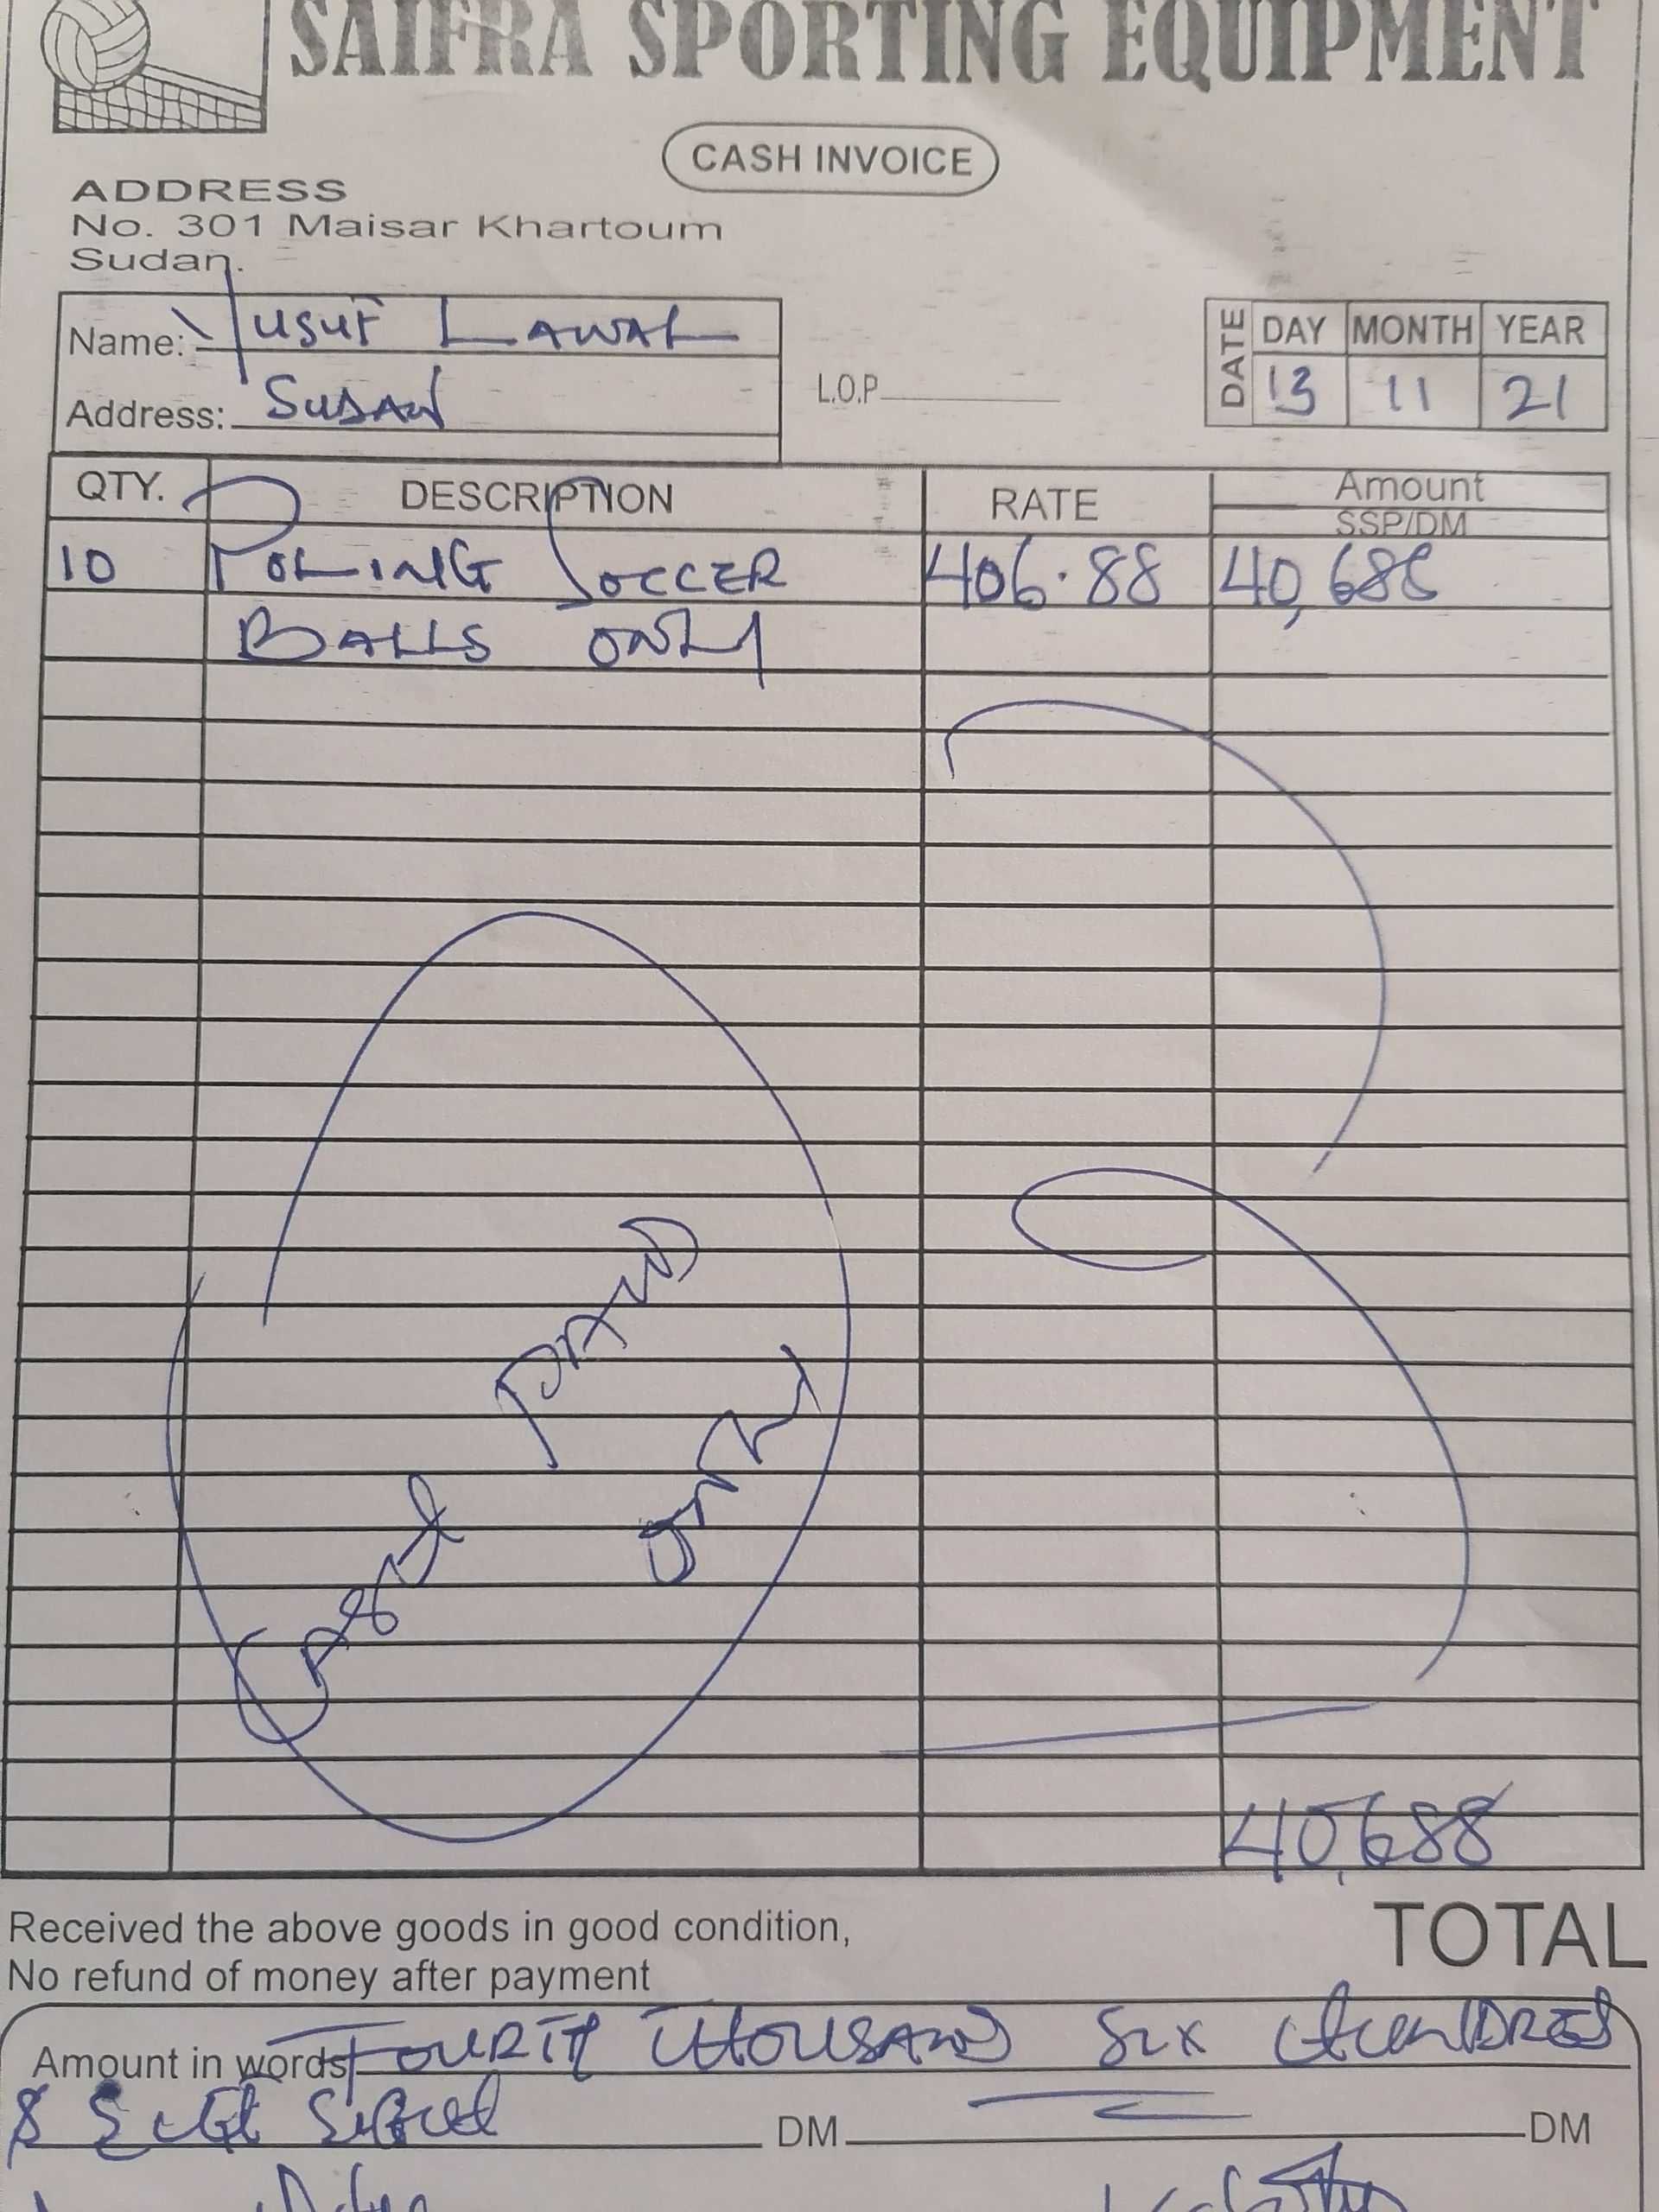 SAIFRA SPORTING EQUIPMENT
CASH INVOICE
ADDRESS
No. 301 Maisar Khartoum
Sudan.
Name: Yusuf LAWAL
Address: SUDAN
L.O.P
DATE DAY MONTH YEAR
13 11 21
QTY. DESCRIPTION RATE Amount
SSP/DM
10 POLING SOCCER 406.88 40,688
BALLS ONLY
Goods
only
40,688
Received the above goods in good condition,
TOTAL
No refund of money after payment
Amount in words FOURTY THOUSAND SIX HUNDRED
& DM DM